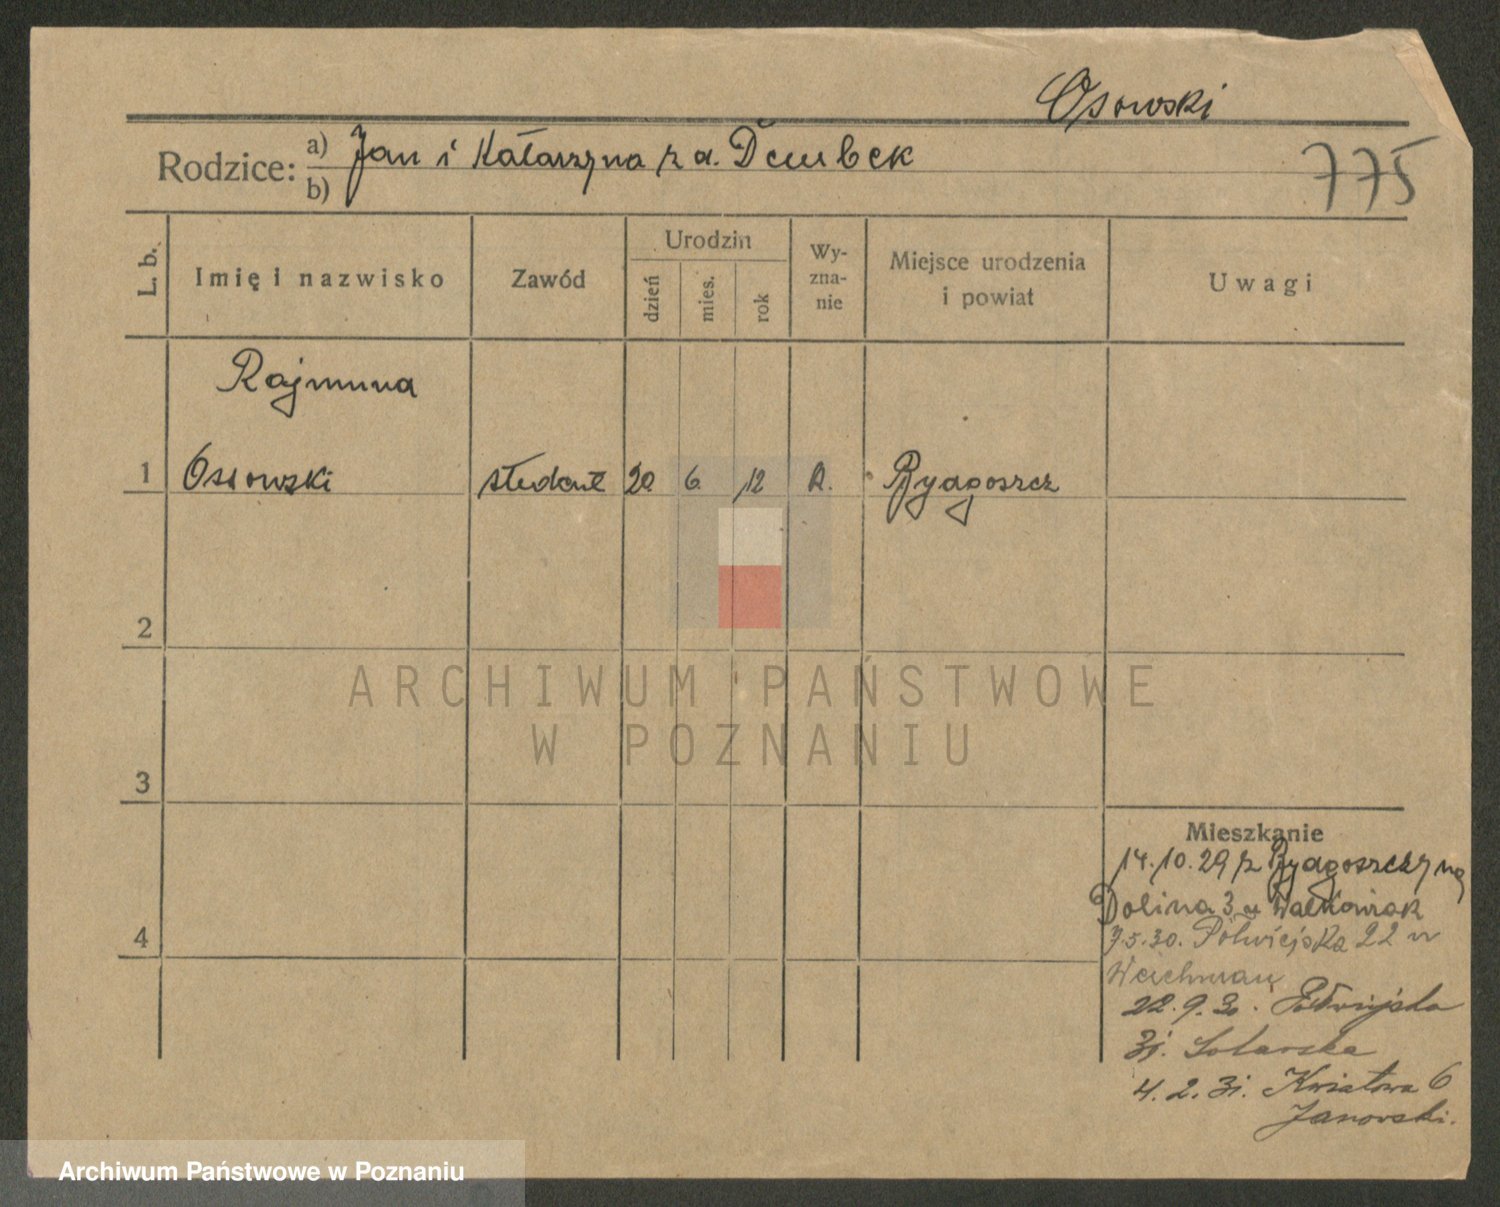 Osowski
Rodzice: a) Jan i Katarzyna z d. Dembek
b)
775
L. b.
Imię i nazwisko
Zawód
Urodzin
dzień
mies.
rok
Wy-
zna-
nie
Miejsce urodzenia
i powiat
Uwagi
Rajmund
1 Ossowski student 20 6 12 R. Bydgoszcz
2
3
4
ARCHIWUM PAŃSTWOWE
W POZNANIU
Mieszkanie
14.10.29 z Bydgoszczy na
Dolina 3 u Walkowiak
7.5.30. Półwiejska 22 u
Weichman
22.9.30. Półwiejska
31. Solarska
4.2.31. Kwiatowa 6
Janowski.
Archiwum Państwowe w Poznaniu